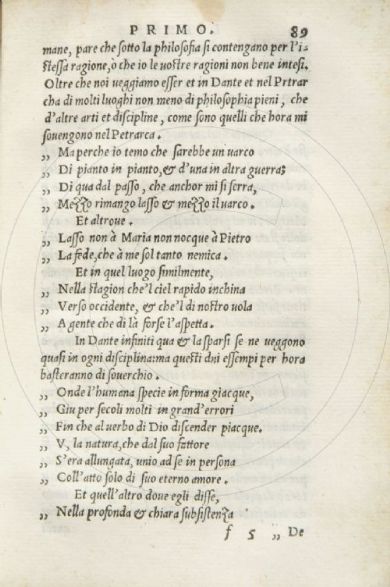 PRIMO. 89
mane, pare che ſotto la philoſofia ſi contengano per l'i-
ſteſſa ragione, ò che io le voſtre ragioni non bene inteſi.
Oltre che noi veggiamo eſſer et in Dante et nel Petrar
cha di molti luoghi non meno di philoſophia pieni, che
d'altre arti et diſcipline, come ſono quelli che hora mi
ſouengono nel Petrarca.
„ Ma perche io temo che ſarebbe un varco
„ Di pianto in pianto, & d'una in altra guerra;
„ Di qua dal paſſo, che anchor mi ſi ſerra,
„ Mezzo rimango laſſo & mezzo il varco.
Et altroue.
„ Laſſo non à Maria non nocque à Pietro
„ La fede, che à me ſol tanto nemica.
Et in quel luogo ſimilmente,
„ Nella ſtagion che'l ciel rapido inchina
„ Verſo occidente, & che'l dì noſtro vola
„ A gente che di là forſe l'aſpetta.
In Dante infiniti qua & la ſparſi ſe ne veggono
quaſi in ogni diſciplina: ma queſti dui eſſempi per hora
baſteranno di ſouerchio.
„ Onde l'humana ſpecie in forma giacque,
„ Giu per ſecoli molti in grand'errori
„ Fin che al verbo di Dio diſcender piacque.
„ V, la natura, che dal ſuo fattore
„ S'era allungata, unio ad ſe in perſona
„ Coll'atto ſolo di ſuo eterno amore.
Et quell'altro doue egli diſſe,
„ Nella profonda & chiara ſubſiſtenza
f 5 „ De